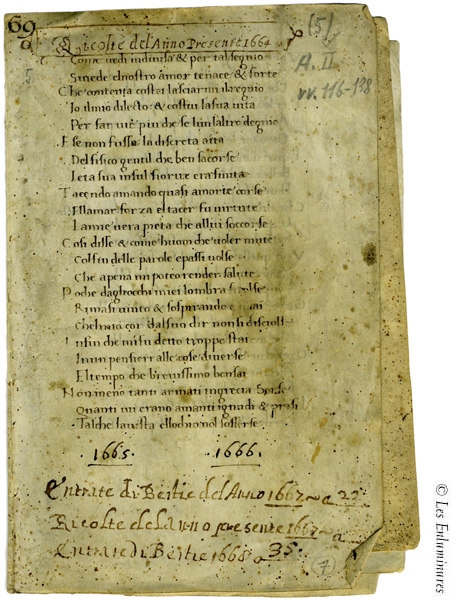 69
(5)
Ricolte del Anno Presente 1664
A. II
vv. 116-138
Come vedi indivisa & per tal segnio
Si vede il nostro amor tenace & forte
Che contenta costei lasciarmi il regnio
Io il mio dilecto & costui la sua vita
Per far vie piu che se lun laltro degnio
E se non fusse la discreta aita
Del fisico gentil che ben sacorse
Leta sua in sul fiorire era finita
Tacendo amando quasi a morte corse
El amar forza el tacer fu virtute
La mie vera pieta che allui soccorse
Cosi disse & come huom che voler mute
Col fin delle parole e passi volse
Che apena mi poteo render salute
Poche dagliocchi miei lombra si tolse
Rimasi vinto & sospirando
Chel mio cor dal suo dir non si disciolse
Infin che mi fu detto troppo stai
In un pensier alle cose diverse
El tempo che brevissimo ben sai
Non meno tanti armati in grecia Serse
Quanti ivi erano amanti ignudi & presi
Tal che la vista ellochio nol sofferse
1665. 1666.
Entrate di Bestie del Anno 1667 a 22
Ricolte del Anno presente 1667 a
Entrate di Bestie 1668 a 35.
(7)
© Les Enluminures